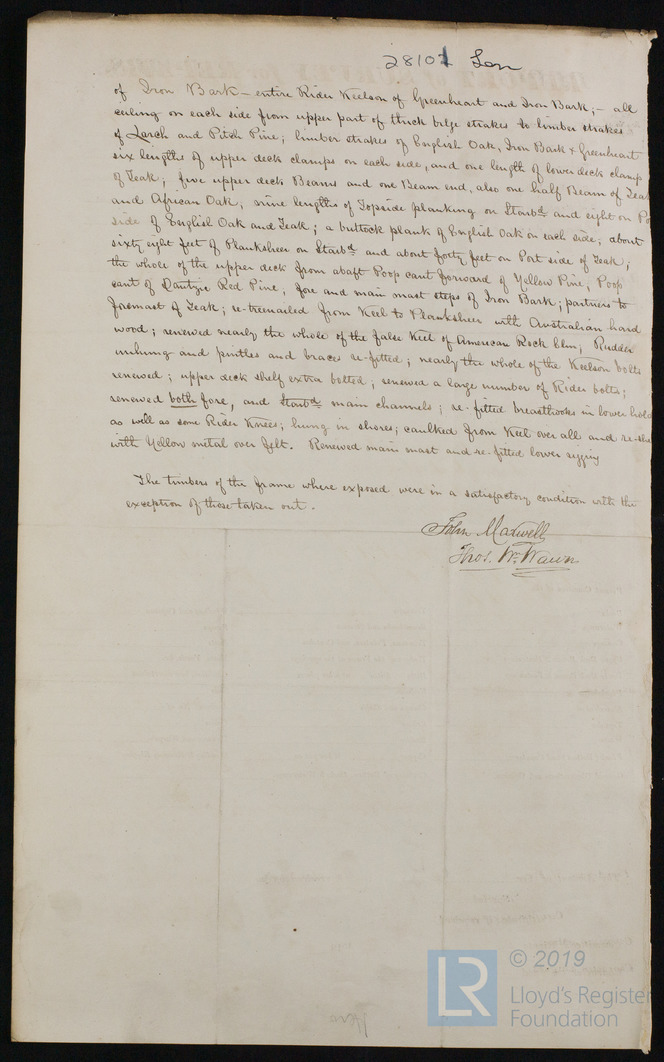 28101 Lon
of Iron Bark – entire Rider Keelson of Greenheart and Iron Bark; – all
ceiling on each side from upper part of thick bilge strakes to limber strakes
of Larch and Pitch Pine; limber strakes of English Oak, Iron Bark & Greenheart
six lengths of upper deck clamps on each side, and one length of lower deck clamps
of Teak; five upper deck Beams and one Beam end, also one half Beam of Teak
and African Oak; nine lengths of Topside planking on Starbd and eight on Po
side of English Oak and Teak; a buttock plank of English Oak on each side; about
sixty eight feet of Planksheer on Starbd and about forty feet on Port side of Teak;
the whole of the upper deck from abaft Poop cant forward of Yellow Pine; Poop
cant of Dantzic Red Pine; fore and main mast steps of Iron Bark; partners to
foremast of Teak; re-trenailed from Keel to Planksheer with Australian hard
wood; renewed nearly the whole of the false Keel of American Rock Elm; Rudder
unhung and pintles and braces re-fitted; nearly the whole of the Keelson bolts
renewed; upper deck shelf extra bolted; renewed a large number of Rider bolts;
renewed both fore, and Starbd main channels; re-fitted breasthooks in lower hold
as well as some Rider Knees; hung in shores; caulked from Keel over all and re-she
with Yellow metal over felt. Renewed main mast and re-fitted lower rigging
The timbers of the frame where exposed were in a satisfactory condition with the
exception of those taken out.
John Maxwell
Thos. Wm. Wawn
© 2019
LR
Lloyd's Register
Foundation